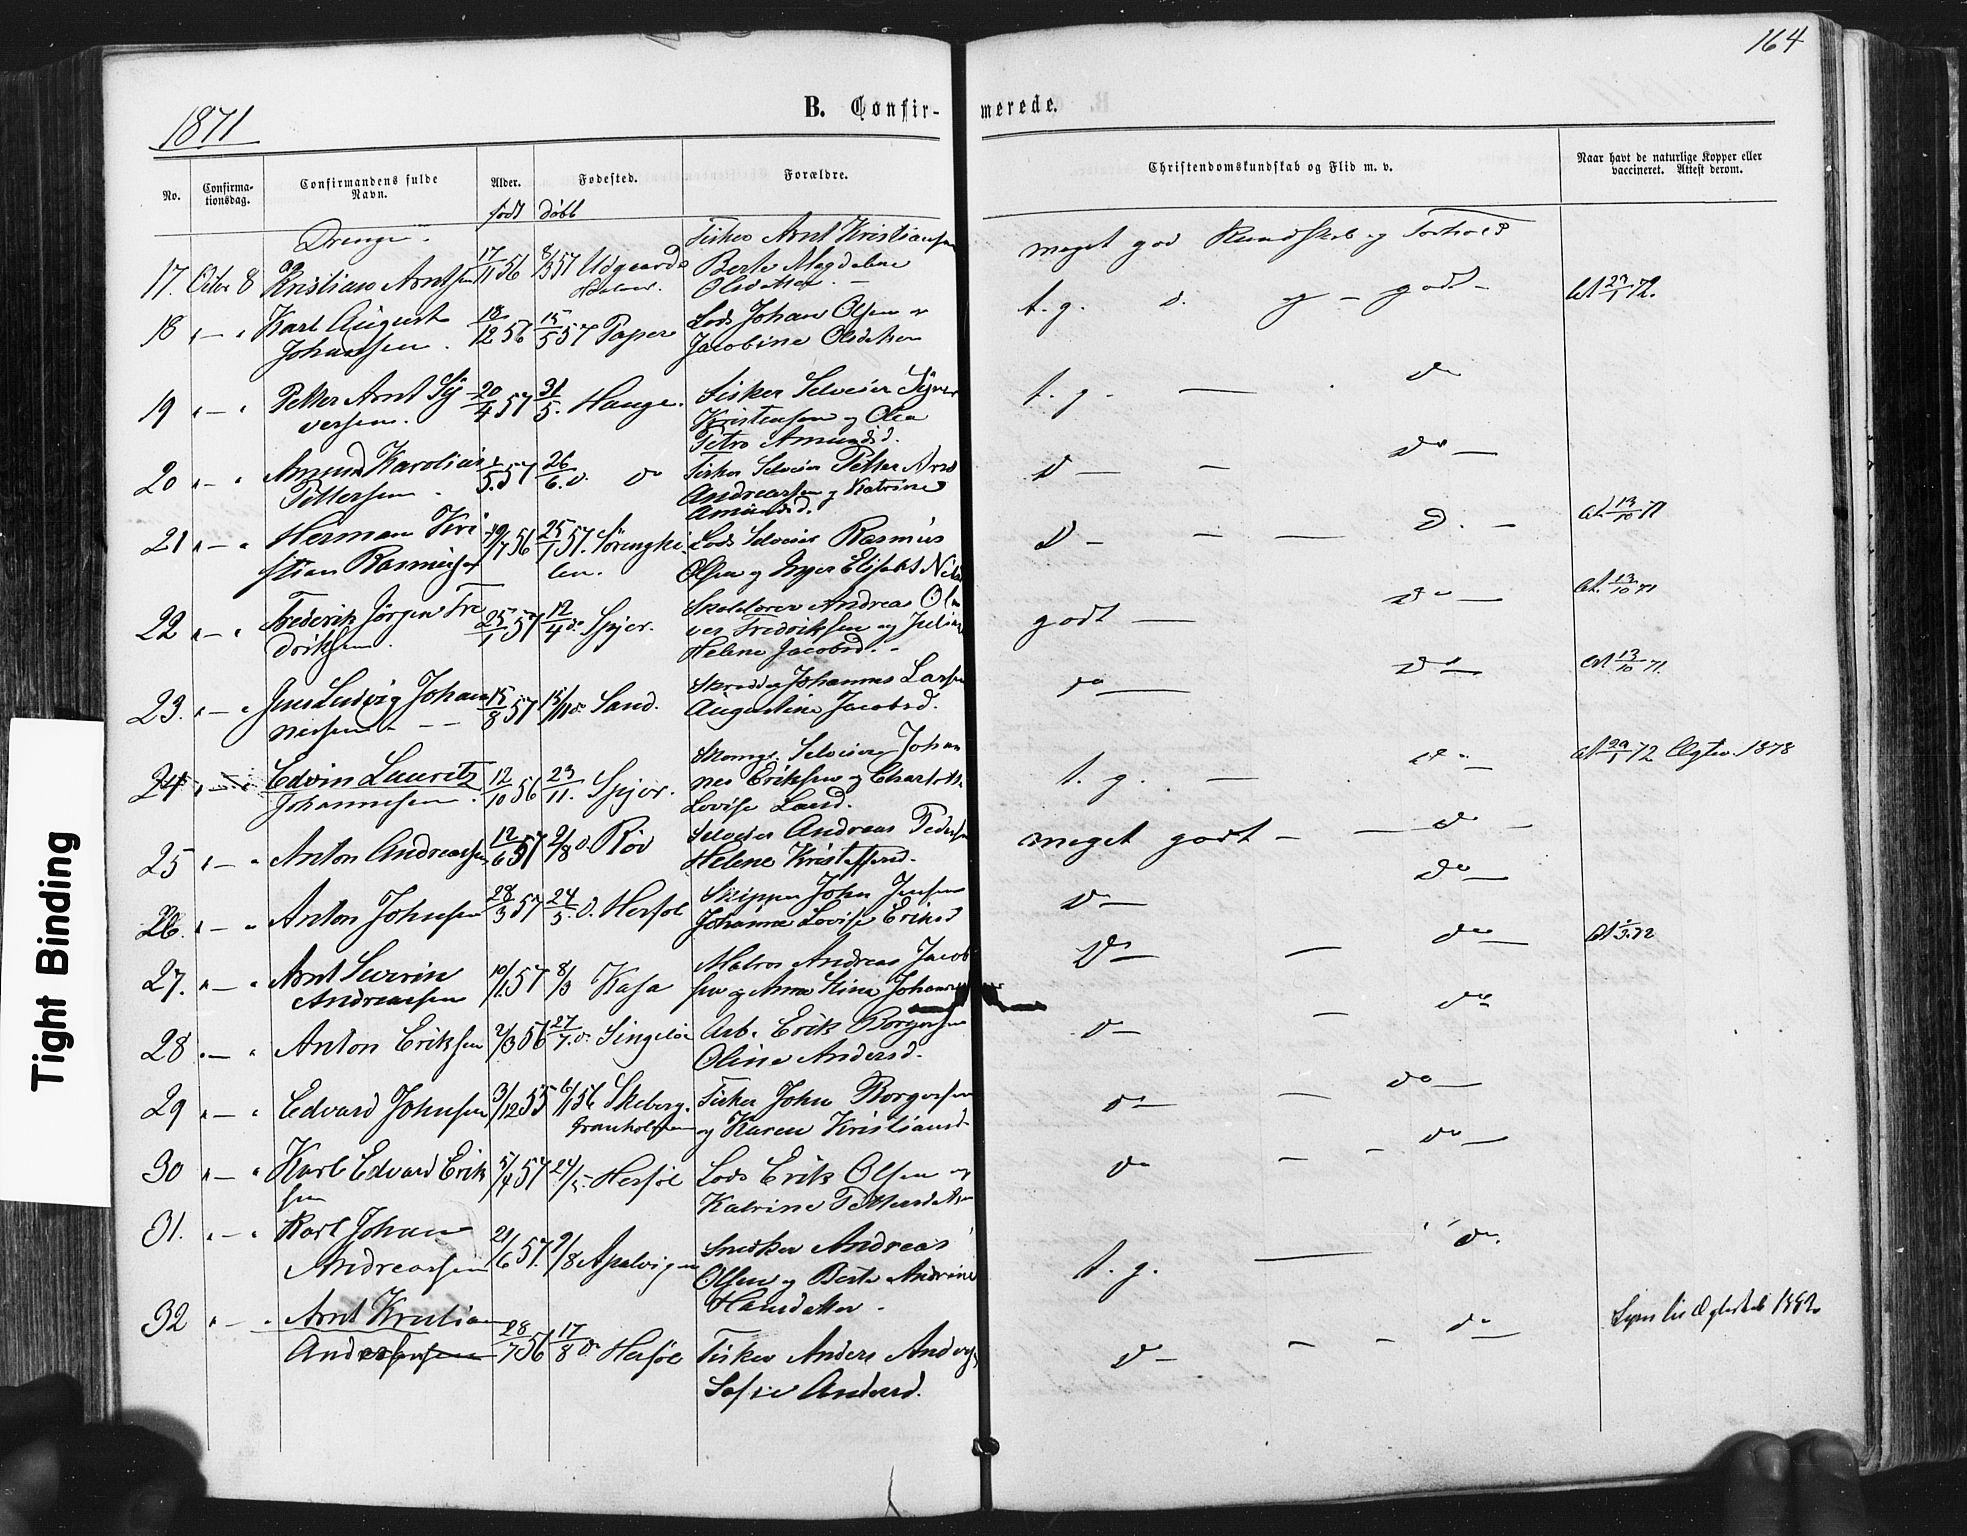 164
1871
B. Confir- merede.
No. Confirma-tionsdag. Confirmandens fulde Navn. Alder. Fødested. Forældre. Christendomskundskab og Flid m. v. Naar havt de naturlige Kopper eller vaccineret. Attest derom.
født døbt
Drenge.
17. Octbr 8 Kristian Arntsen 17/11 56 8/3 57 Udgaards Fisker Arnt Kristiansen
Berte Magdalene
Olsdatter. —
meget god Kundskab og Forhold
18 " — " Karl August
Johansen. 18/12 56 15/5 57 Paper Lods Johan Olsen
Jacobine Olsdatter
t. g. — godt — 72.
19 " — " Petter Arnt Sy
versen. 20/4 57 31/5. Hauge. Fisker Selveier Syver
Kristensen og Olea
Petro Amundsd.
t. g. — do
20 " — " Amund Karolius
Pettersen. 5. 57 26/6. do Fisker Selveier Petter Arnt
Andreassen og Katrine
Amundsd.
D — — do —
21 " — " Herman Kri
stian Rasmussen 56 25/1 57. Sørengki-
len. Lods Selveier Rasmus
Olsen og Inger Elisabet Nils
D — — D. — At. 13/10 71
22 " — " Frederik Jørgen Fre
driksen. 25/1 57 12/4 do Spjer. Andreas Oli
ver Fredriksen og Juliane
Helene Jacobsd. —
godt — do — At. 13/10 71
23. " — " Jens Ludvig Johan
nessen — — 15/8 57 15/11 do Sand. Skrædder Johannes Larsen
Augustine Jacobsd.
do — do — At 13/10 71.
24 " — " Edvin Lauritz
Johannesen. 12/10 56 23/11. Spjer. Selveier Johan
nes Eriksen og Charlotte
Lovise Laud.
t. g. — do — At 29/1 72 1878
25 " — " Anton Andreassen 12/6 57 9/8 do Røv Selveier Andreas Peders
Helene Kristoffersd.
meget godt — — do —
26. " — " Anton Johnsen 28/3 57 24/5. do Herføl Skipper John Jensen
Johanne Lovise Eriksd
do — do —
27. " — " Arnt Severin
Andreassen 10/1 57 8/3 Kasa Matros Andreas Jacob
sen og Anne Stina Johannes
do — — do — 72
28 " — " Anton Eriksen 2/3 56 27/7. do Singeløe Arb. Erik Borgersen
Oline Andersd.
do — — do
29 " — " Edvard Johnsen 3/12 55 6/1 56 Skeberg.
Granholmen Fisker John Borgersen
og Karen Kristiansd.
do — — do —
30 " — " Karl Edvard Erik
sen 5/4 57 24/5 — Herføl Lods Erik Olsen og
Katrine Pettersdatter
do — — do —
31. " — " Karl Johan
Andreassen 21/6 57. 9/8 Apalvigen Snedker Andreas
Olsen og Berte Andrine
Hansdatter —
t. g. — do.
32 " — " Arnt Kristian
Andersen 28/7 56 17/8 do Herføl Fisker Anders Anders
Sofie Andersd.
do — — do — 1892
Tight Binding